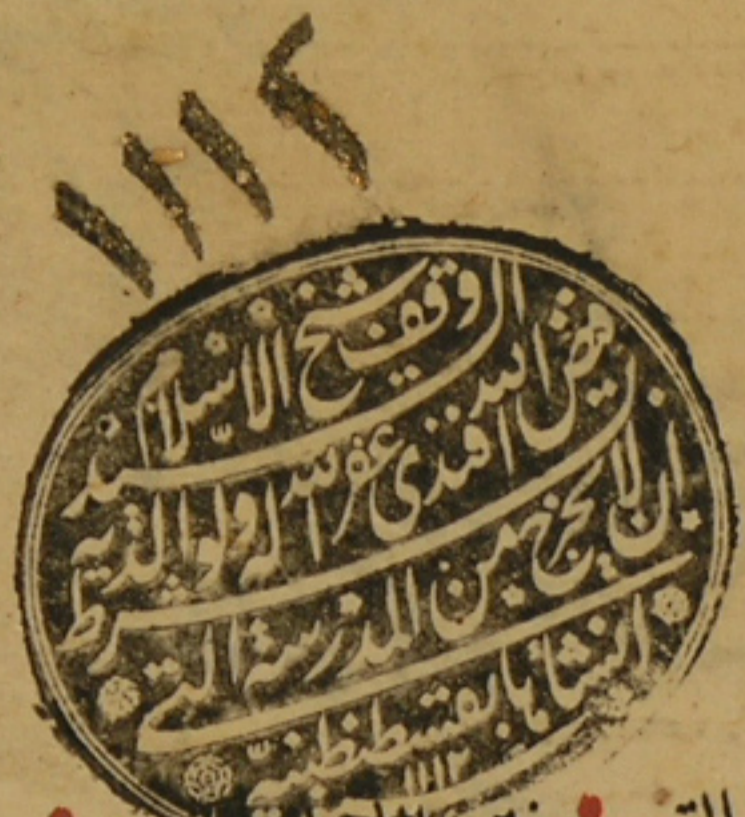 ١١١٢
وقف شيخ الاسلام السيد
فيض الله افندى غفر الله له ولوالديه
بشرط ان لا يخرج من المدرسة التى
انشأها بقسطنطينية
١١١٢